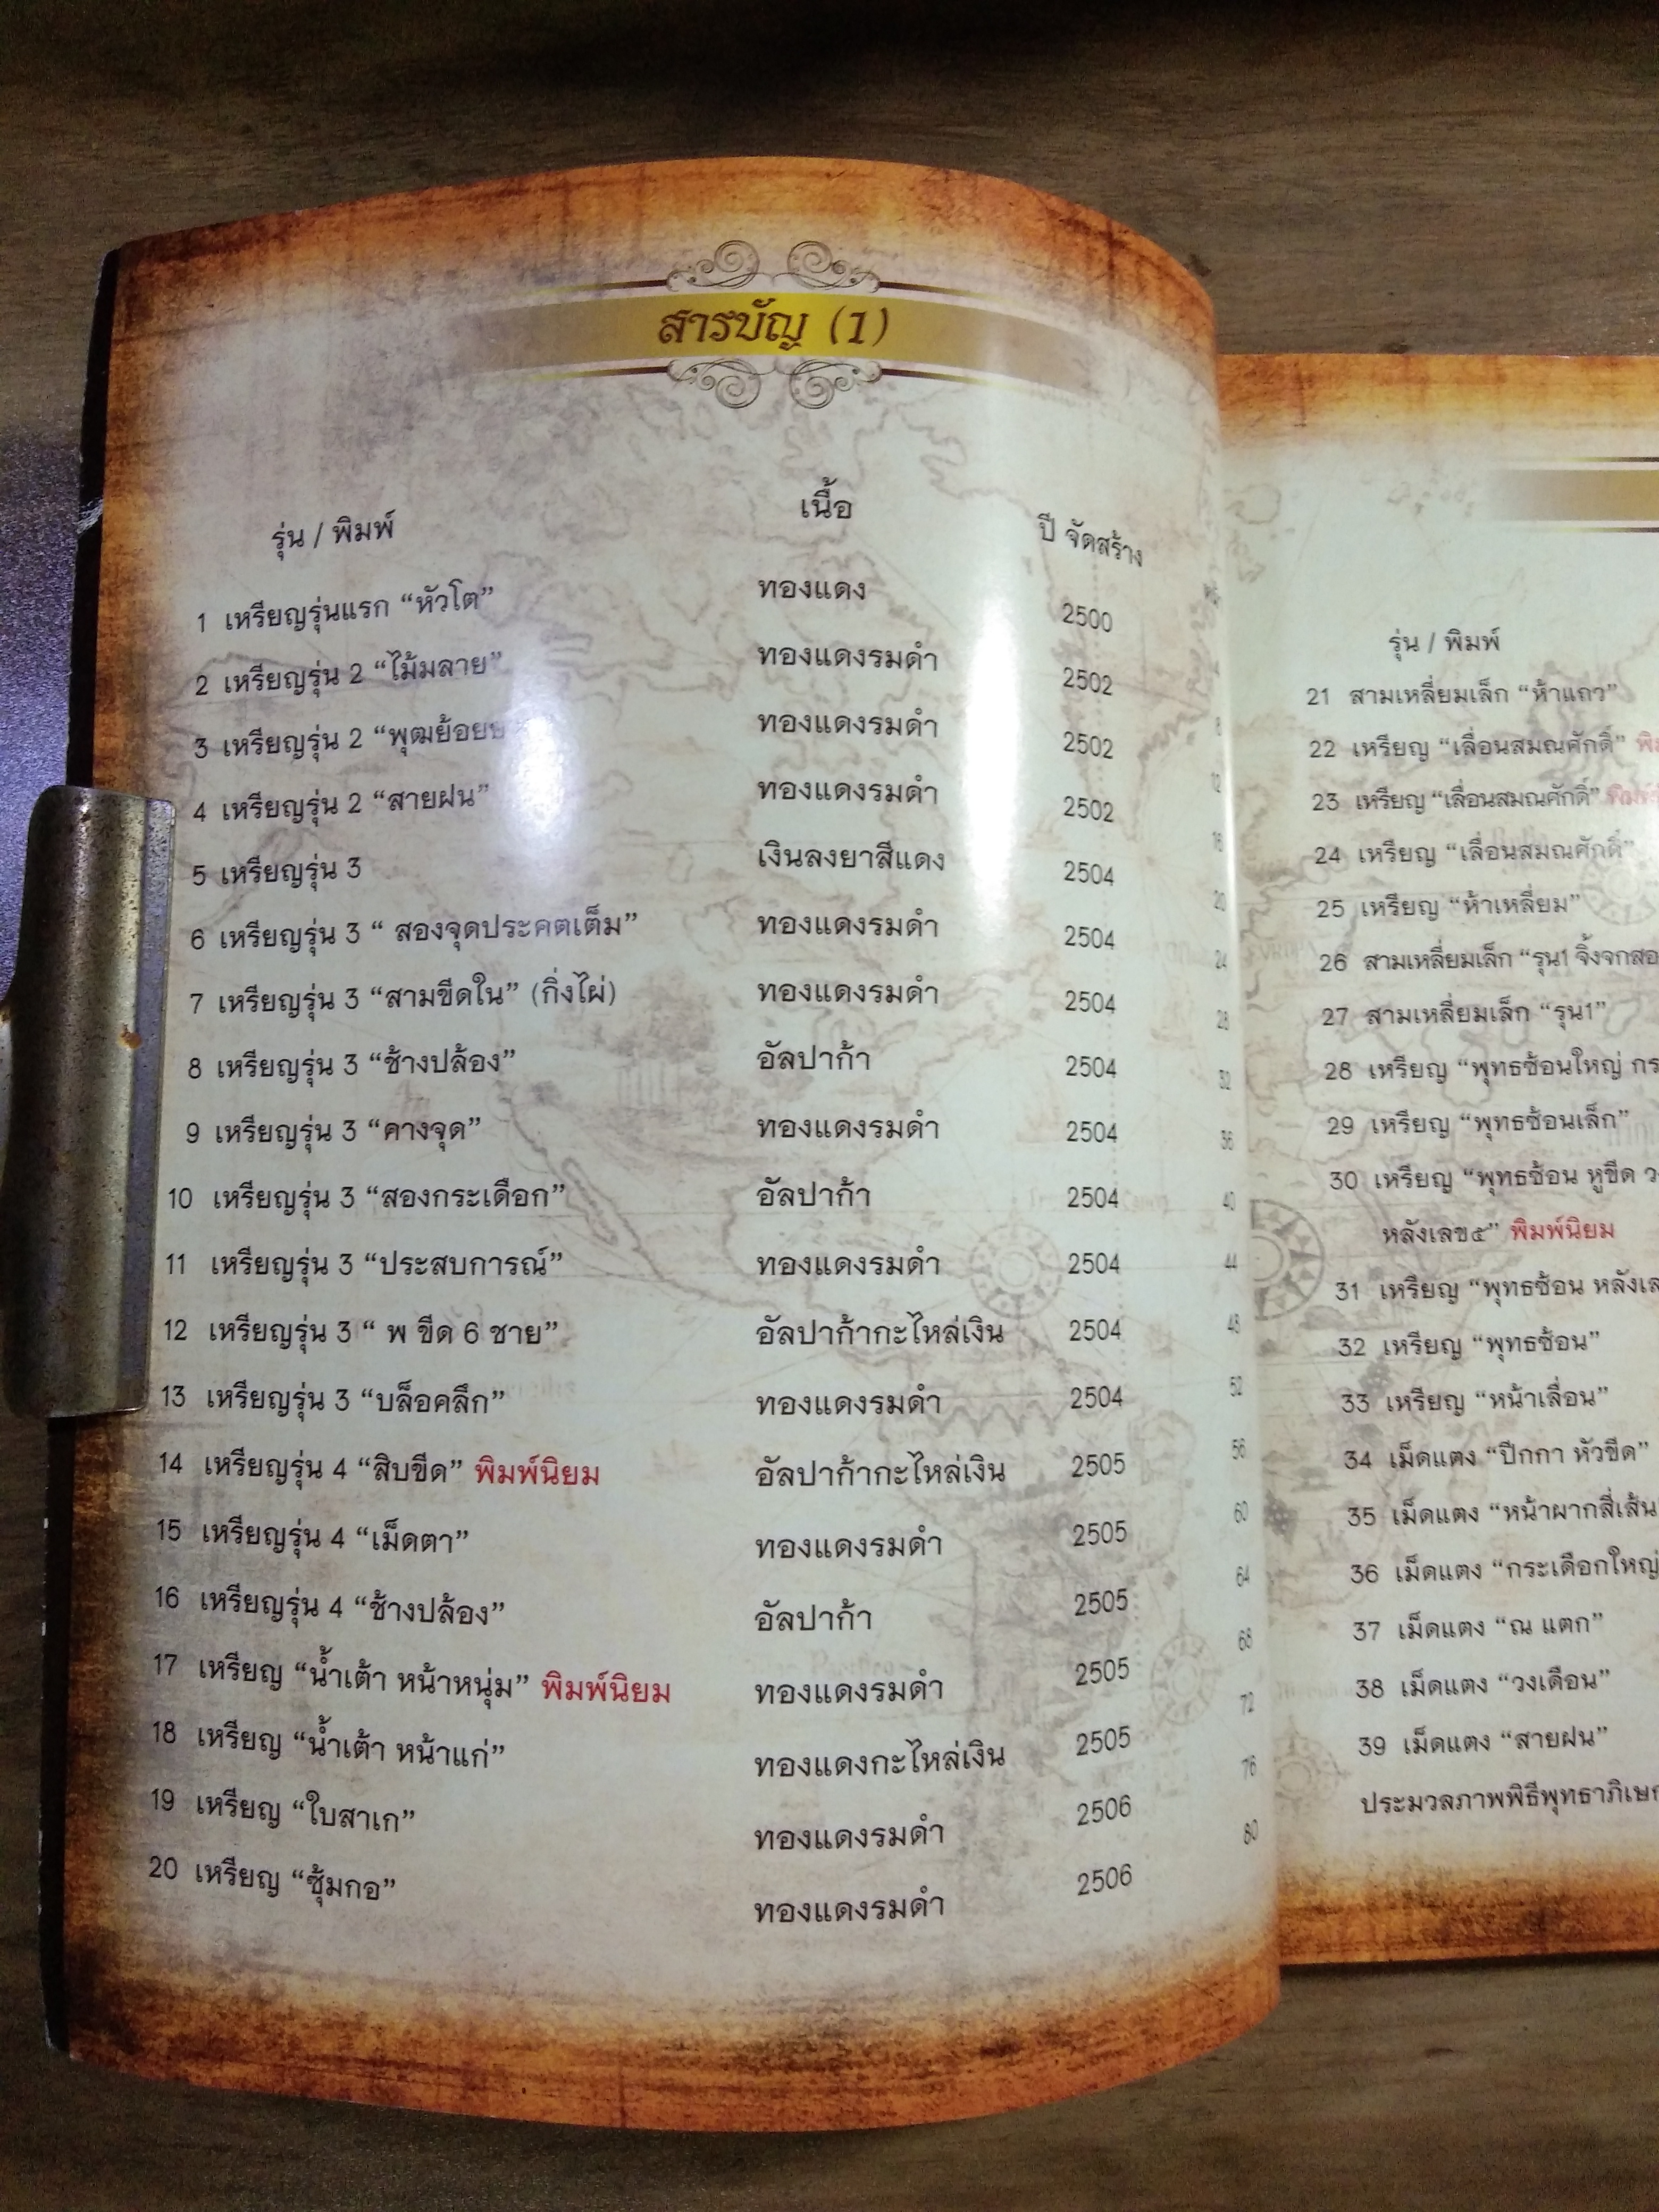 สารบัญ (1)
รุ่น / พิมพ์ เนื้อ ปี จัดสร้าง
1 เหรียญรุ่นแรก “หัวโต” ทองแดง 2500
2 เหรียญรุ่น 2 “ไม้มลาย” ทองแดงรมดำ 2502
3 เหรียญรุ่น 2 “พุฒย้อย ทองแดงรมดำ 2502 8
4 เหรียญรุ่น 2 “สายฝน” ทองแดงรมดำ 2502 12
5 เหรียญรุ่น 3 เงินลงยาสีแดง 2504 16
6 เหรียญรุ่น 3 “ สองจุดประคตเต็ม” ทองแดงรมดำ 2504 20
7 เหรียญรุ่น 3 “สามขีดใน” (กิ่งไผ่) ทองแดงรมดำ 2504 24
8 เหรียญรุ่น 3 “ช้างปล้อง” อัลปาก้า 2504 28
9 เหรียญรุ่น 3 “คางจุด” ทองแดงรมดำ 2504 32
10 เหรียญรุ่น 3 “สองกระเดือก” อัลปาก้า 2504 36
11 เหรียญรุ่น 3 “ประสบการณ์” ทองแดงรมดำ 2504 40
12 เหรียญรุ่น 3 “ พ ขีด 6 ชาย” อัลปาก้ากะไหล่เงิน 2504 44
13 เหรียญรุ่น 3 “บล็อคลึก” ทองแดงรมดำ 2504 48
14 เหรียญรุ่น 4 “สิบขีด” พิมพ์นิยม อัลปาก้ากะไหล่เงิน 2505 52
15 เหรียญรุ่น 4 “เม็ดตา” ทองแดงรมดำ 2505 56
16 เหรียญรุ่น 4 “ช้างปล้อง” อัลปาก้า 2505 60
17 เหรียญ “น้ำเต้า หน้าหนุ่ม” พิมพ์นิยม ทองแดงรมดำ 2505 64
18 เหรียญ “น้ำเต้า หน้าแก่” ทองแดงกะไหล่เงิน 2505 68
19 เหรียญ “ใบสาเก” ทองแดงรมดำ 2506 72
20 เหรียญ “ซุ้มกอ” ทองแดงรมดำ 2506 76
80
รุ่น / พิมพ์
21 สามเหลี่ยมเล็ก “ห้าแถว”
22 เหรียญ “เลื่อนสมณศักดิ์”
23 เหรียญ “เลื่อนสมณศักดิ์”
24 เหรียญ “เลื่อนสมณศักดิ์”
25 เหรียญ “ห้าเหลี่ยม”
26 สามเหลี่ยมเล็ก “รุน1 จิ้งจกสอ
27 สามเหลี่ยมเล็ก “รุน1”
28 เหรียญ “พุทธซ้อนใหญ่ กร
29 เหรียญ “พุทธซ้อนเล็ก”
30 เหรียญ “พุทธซ้อน หูขีด ว
หลังเลข๕” พิมพ์นิยม
31 เหรียญ “พุทธซ้อน หลังเล
32 เหรียญ “พุทธซ้อน”
33 เหรียญ “หน้าเลื่อน”
34 เม็ดแตง “ปีกกา หัวขีด”
35 เม็ดแตง “หน้าผากสี่เส้น
36 เม็ดแตง “กระเดือกใหญ่
37 เม็ดแตง “ณ แตก”
38 เม็ดแตง “วงเดือน”
39 เม็ดแตง “สายฝน”
ประมวลภาพพิธีพุทธาภิเษก